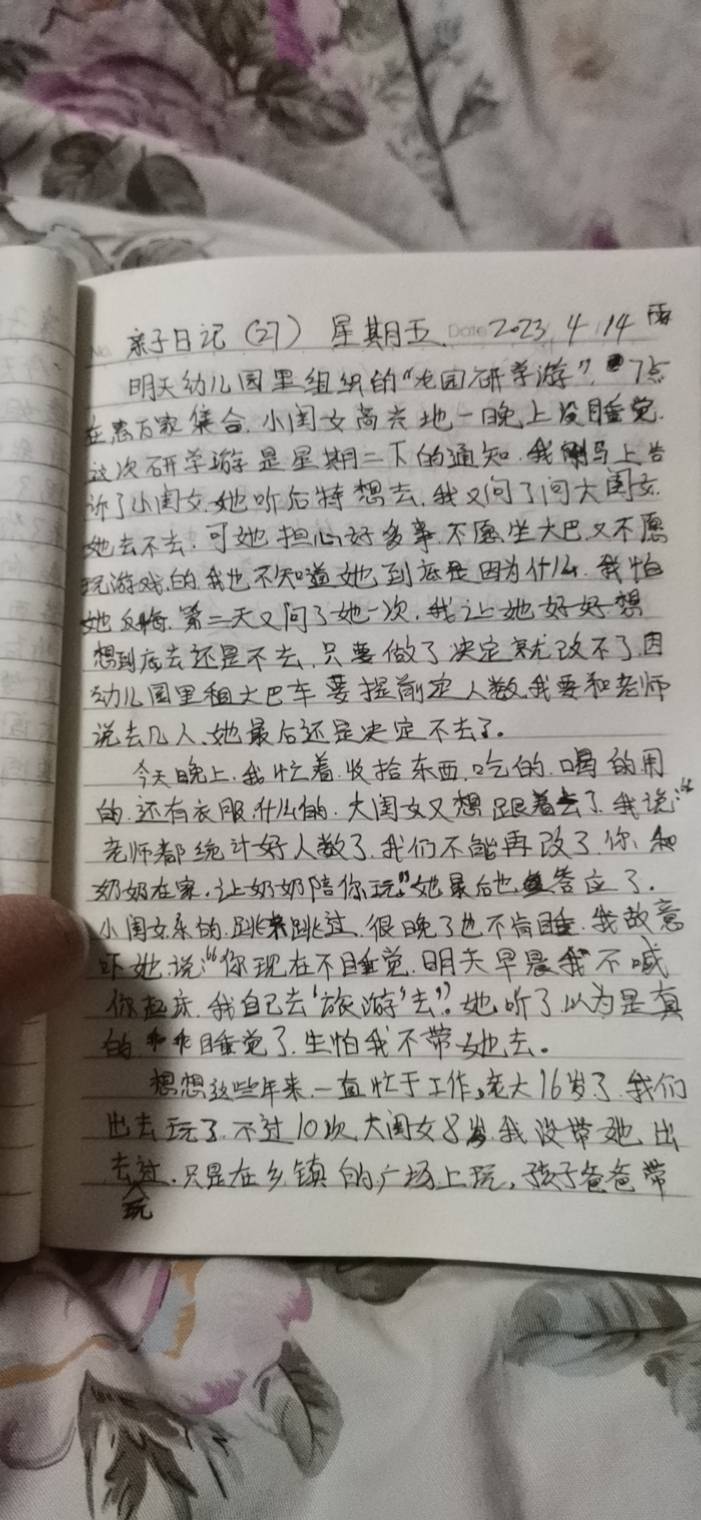 亲子日记（27） 星期五 Date 2023 4 14 雨
明天幼儿园里组织的“龙园研学游”，7点
在惠万家集合.小闺女高兴地一晚上没睡觉.
这次研学游是星期二下的通知.我马上告
诉了小闺女.她听后特想去.我又问了问大闺女.
她去不去.可她担心好多事.不愿坐大巴.又不愿
玩游戏的.我也不知道她到底是因为什么.我怕
她反悔.第二天又问了她一次.我让她好好想
想到底去还是不去.只要做了决定就改不了.因
幼儿园里租大巴车要提前定人数.我要和老师
说去几人.她最后还是决定不去了。
今天晚上.我忙着收拾东西.吃的.喝的用
的.还有衣服.什么的.大闺女又想跟着去了.我说：“
老师都统计好人数了.我们不能再改了.你和
奶奶在家.让奶奶陪你玩。”她最后也答应了.
小闺女乐的.跳来跳过.很晚了也不肯睡.我故意
吓她说：“你现在不睡觉.明天早晨我不喊
你起床.我自己去‘旅游’去”？她听了以为是真
的乖乖睡觉了.生怕我不带她去。
想想这些年来.一直忙于工作，老大16岁了.我们
出去玩了不过10次.大闺女8岁.我没带她出
去玩过.只是在乡镇的广场上玩，孩子爸爸带